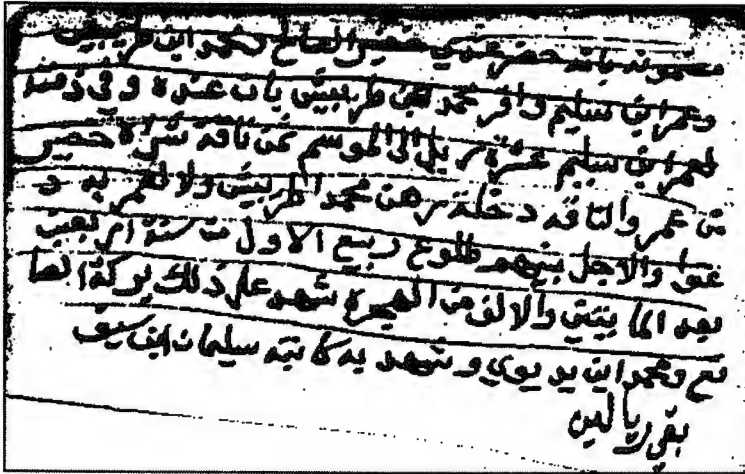 مضمونه بانه حضر عندي خضير الصالح ومحمد ابن طربيش
وعمر ابن سليم واقر محمد ابن طربيش بان عنده وفي ذمته
لعمر ابن سليم عشرة ريال الى الموسم ثمن ناقه شراه حضير
من عمر والناقه دخلة برهن محمد الطربيش ولا لعمر به د
عوا والاجل بينهم طلوع ربيع الاول من سنة اربعين
بعد المايتين والالف من الهجره شهد على ذلك بركة الصا
نع ومحمد ابن بديوي وشهد به كاتبه سليمان ابن سيف
بقي ريالين